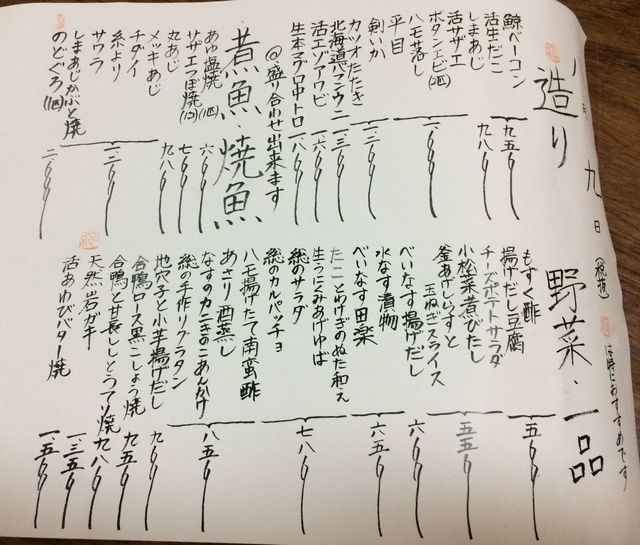 月 九 日 (税抜)
は特におすすめです
造り
鯨ベーコン
活生だこ
九五〇
しまあじ
九八〇
活サザエ
ボタンエビ(2匹)
ハモ落し
平目
一、〇〇〇
剣いか
カツオたたき
一、二〇〇
北海道バフンウニ
一、三〇〇
活エゾアワビ
一、六〇〇
生本マグロ中トロ
一、八〇〇
@盛り合わせ出来ます
煮魚・焼魚
あゆ塩焼(1匹)
六〇〇
サザエつぼ焼(1コ)
七〇〇
丸あじ
九八〇
メッキあじ
チダイ
糸より
サワラ
一、二〇〇
しまあじかぶと焼
のどぐろ(1匹)
二、〇〇〇
野菜・一品
もずく酢
揚げだし豆腐
五〇〇
チーズポテトサラダ
小松菜煮びたし
釜あげしらすと
玉ねぎスライス
五五〇
べいなす揚げだし
六〇〇
水なす漬物
べいなす田楽
六五〇
たことわけぎのぬた和え
生うにみあげゆば
鱧のサラダ
鱧のカルパッチョ
七八〇
ハモ揚げたて南蛮酢
あさり酒蒸し
なすのカニきのこあんかけ
鱧の手作りグラタン
八五〇
地穴子と小芋揚げだし
九〇〇
合鴨ロース黒こしょう焼
九五〇
合鴨と甘長ししとうてり焼
九八〇
天然岩ガキ
一、三五〇
活あわびバター焼
一、五〇〇